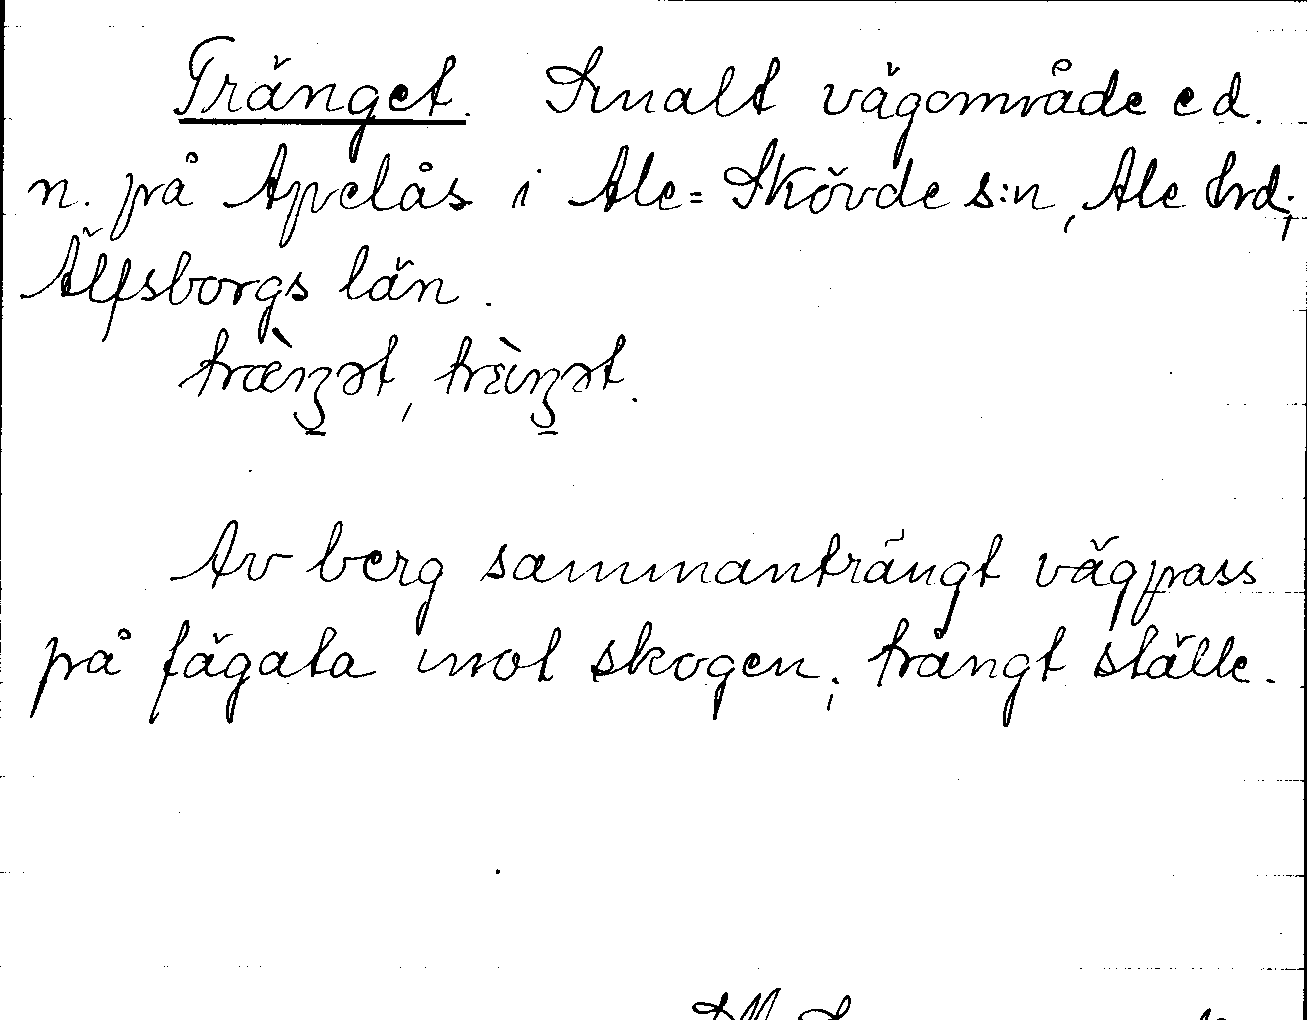 Tränget. Smalt vägområde ed.
n. på Apelås i Ale=Skövde s:n, Ale hrd;
Älfsborgs län.
træ̀nʒət, trèinʒət.
Av berg sammanträngt vägpass
på fägata mot skogen; trångt ställe.